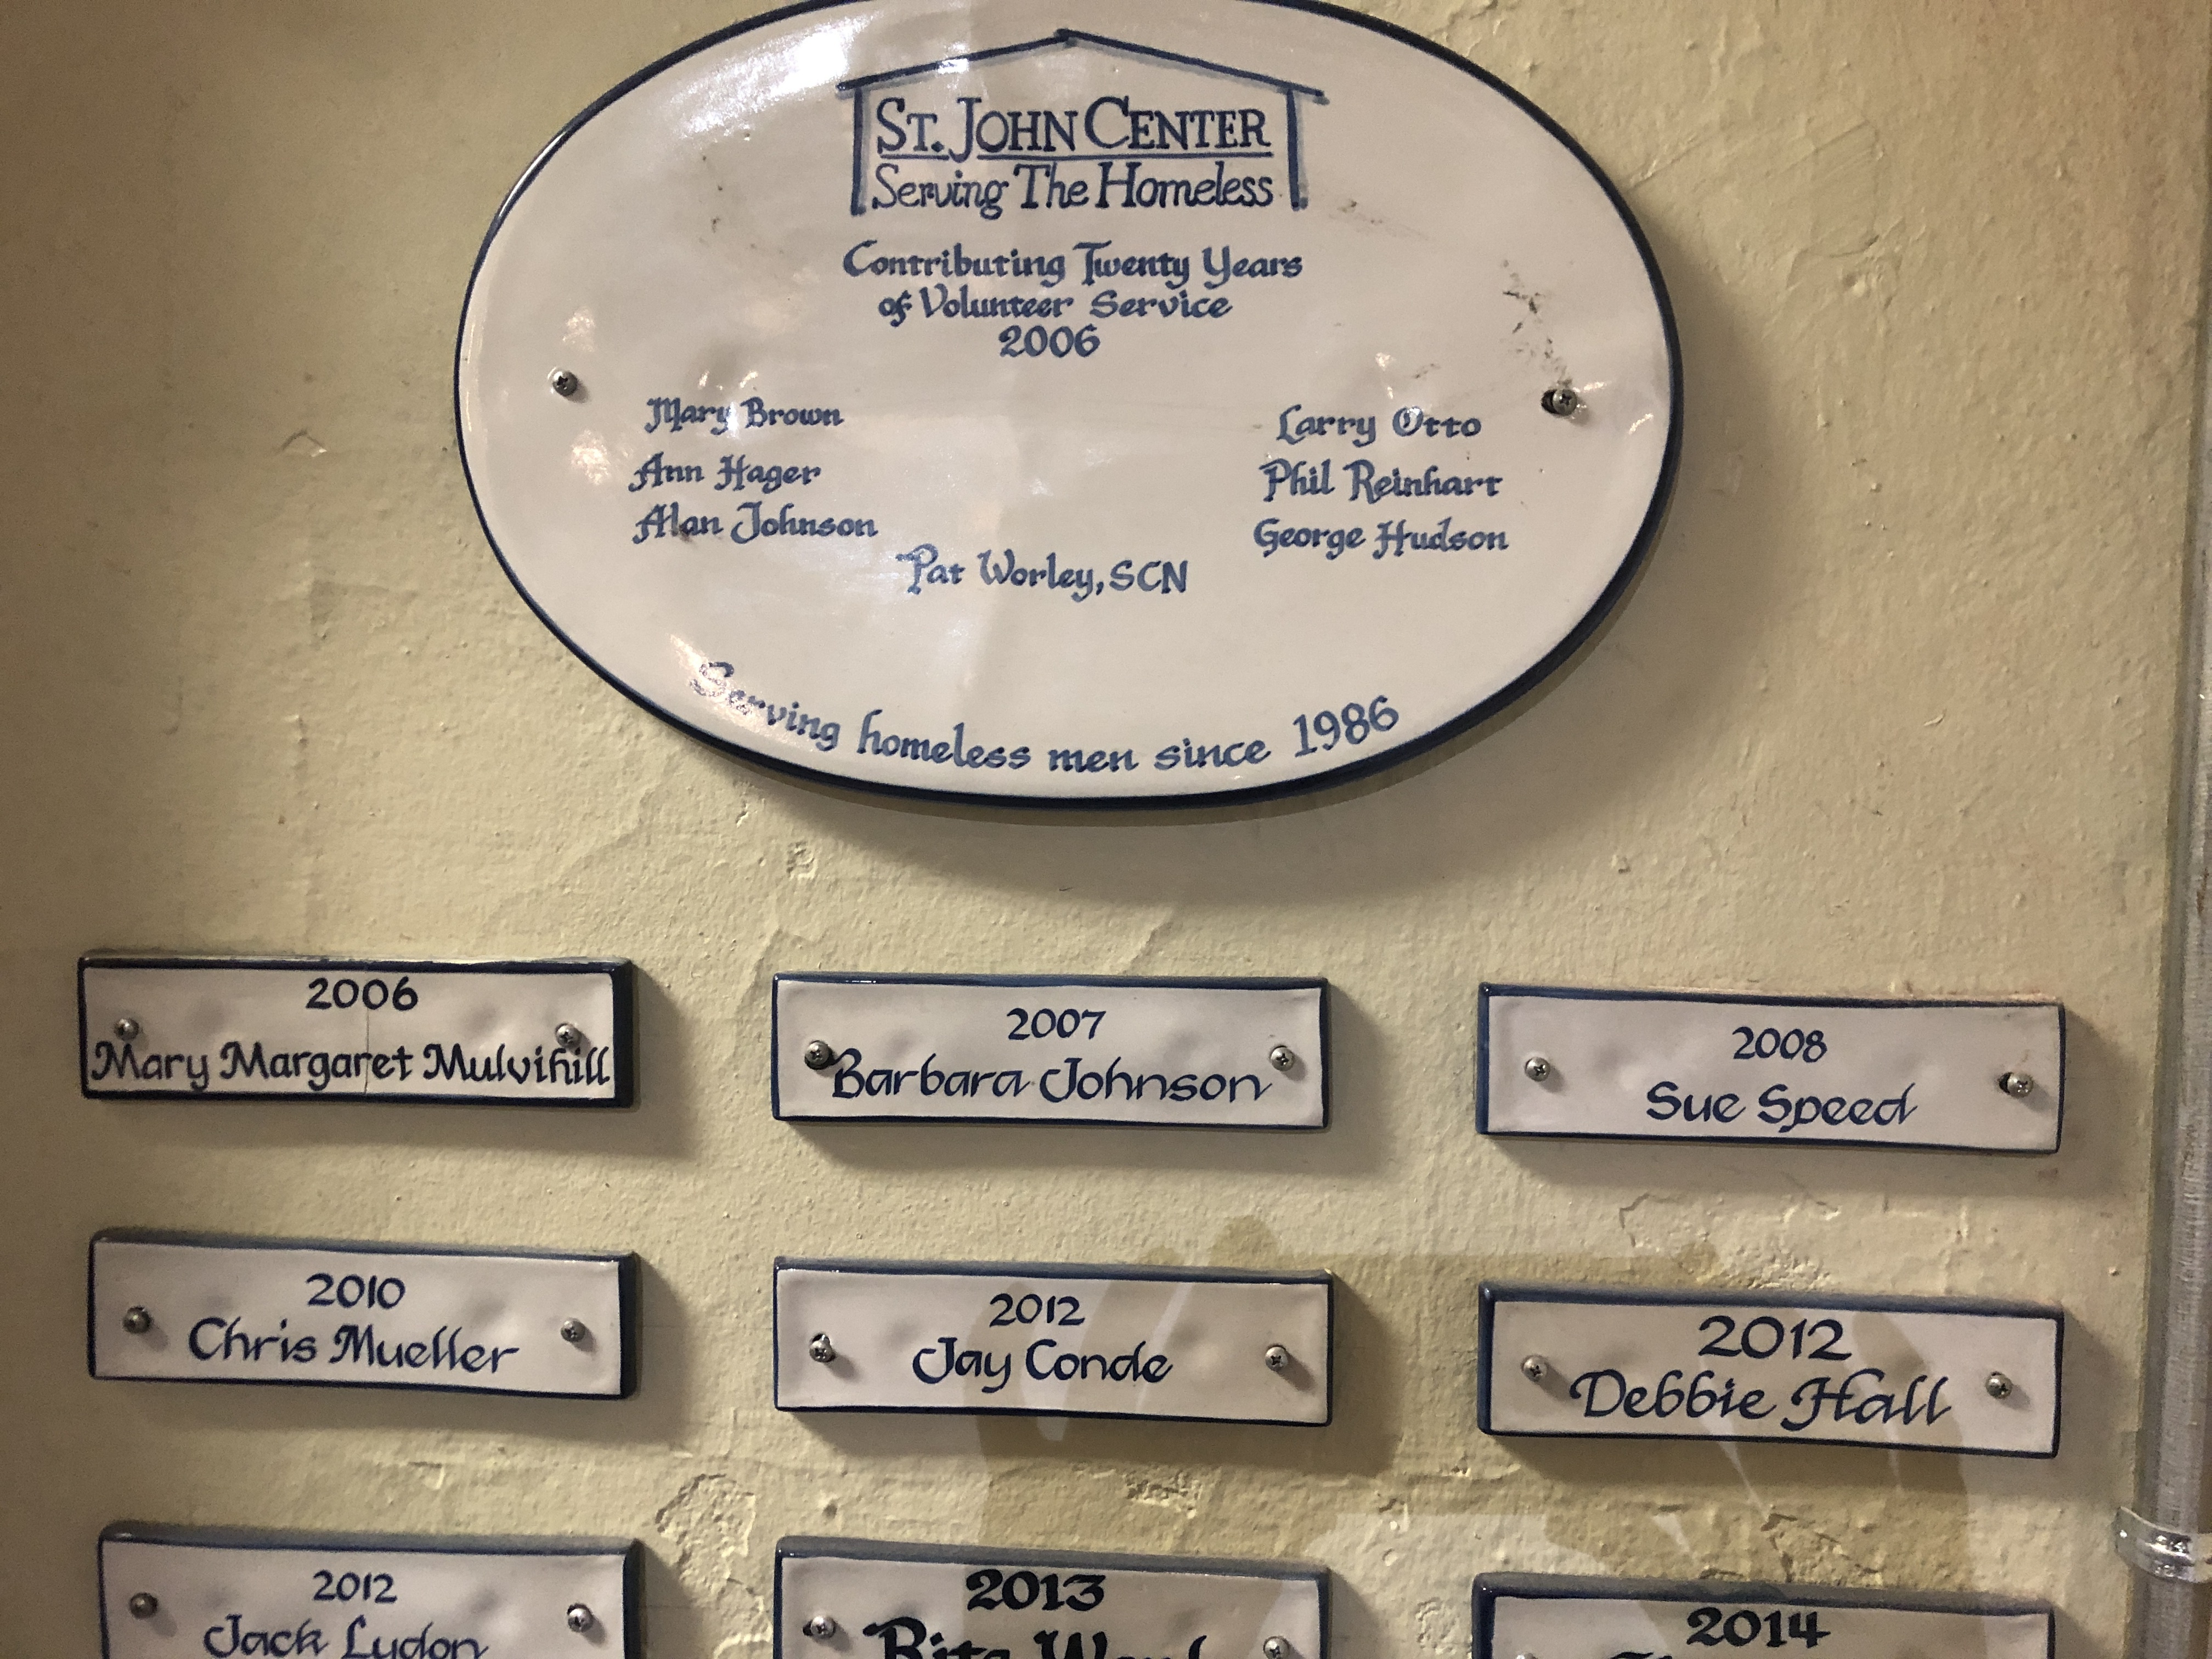 St. John Center
Serving The Homeless
Contributing Twenty Years
of Volunteer Service
2006
Mary Brown
Ann Hager
Alan Johnson
Larry Otto
Phil Reinhart
George Hudson
Pat Worley, SCN
Serving homeless men since 1986
2006
Mary Margaret Mulvihill
2007
Barbara Johnson
2008
Sue Speed
2010
Chris Mueller
2012
Jay Conde
2012
Debbie Hall
2012
Jack Lydon
2013
2014